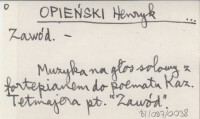 OPIEŃSKI Henryk ...
Zawód. -
Muzyka na głos solowy z
fortepianem do poematu Kaz.
Tetmajera pt. "Zawód".